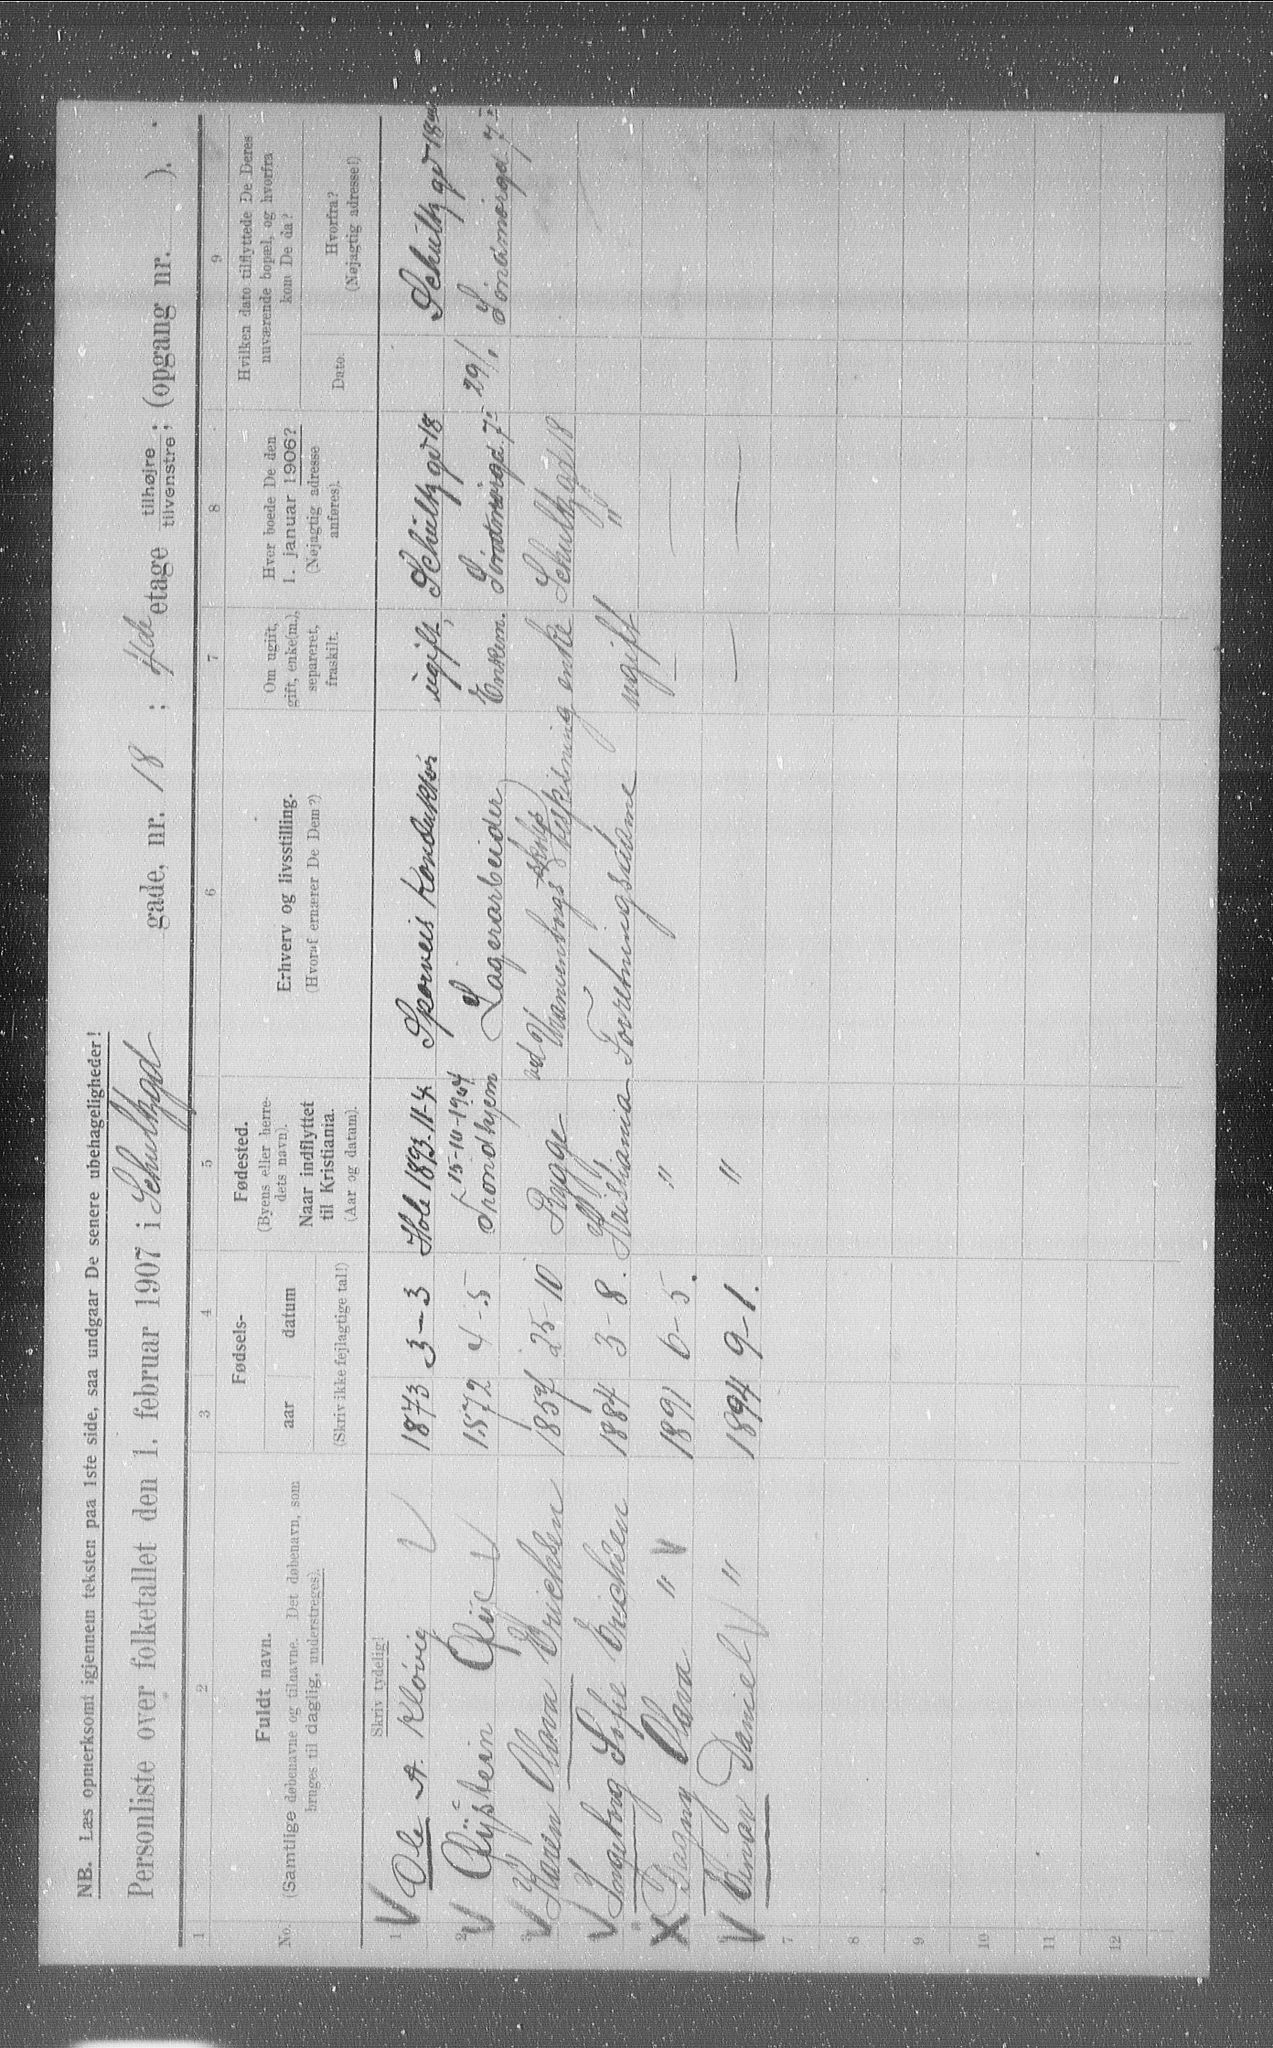 NB. Læs opmerksomt igjennem teksten paa 1ste side, saa undgaar De senere ubehageligheder!
Personliste over folketallet den 1. februar 1907 i Schultzgd gade, nr. 18 ; 4de etage tilhøjre tilvenstre; (opgang nr. ).
1 2 3 4 5 6 7 8 9
No. Fuldt navn. (Samtlige døbenavne og tilnavne. Det døbenavn, som bruges til daglig, understreges).
Fødsels- aar datum (Skriv ikke fejlagtige tal!)
Fødested. (Byens eller herredets navn). Naar indflyttet til Kristiania. (Aar og datum).
Erhverv og livsstilling. (Hvoraf ernærer De Dem?)
Om ugift, gift, enke(m.), separeret, fraskilt.
Hvor boede De den 1. januar 1906? (Nøjagtig adresse anføres).
Hvilken dato tilflyttede De Deres nuværende bopæl, og hvorfra kom De da?
Dato. Hvorfra? (Nøjagtig adresse!)
Skriv tydelig!
1 Ole A. Kløvig 1873 3-3 Hole 1893-11-4 Sporveis Konduktør ugift, Schultzgd 18 Schultzgd 18
2 Øistein 1872 4-5 15-10-1904 Trondhjem Lagerarbeider Enkem. 7 29/1 7
3 Karen Olava Erichsen 1857 25-10 Rygge ved enke Schultzgd 18
4 Ingeborg Sofie Erichsen 1884 3-8. Kristiania Forretningsdame ugift "
Dagny Olava " 1891 6-5. " — —
Einar Daniel " 1894 9-1. " — —
7
8
9
10
11
12